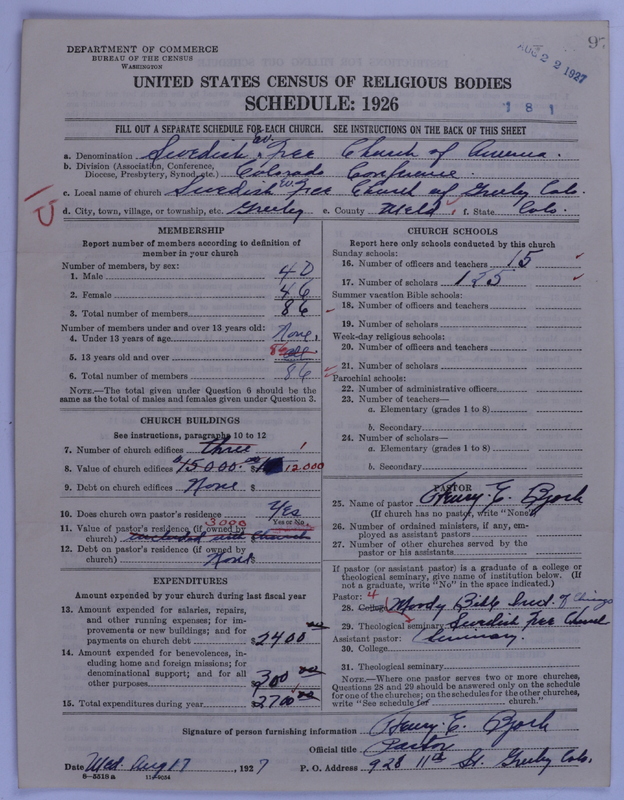 DEPARTMENT OF COMMERCE
BUREAU OF THE CENSUS
WASHINGTON
AUG 22 1927
9
UNITED STATES CENSUS OF RELIGIOUS BODIES
SCHEDULE: 1926
181
FILL OUT A SEPARATE SCHEDULE FOR EACH CHURCH. SEE INSTRUCTIONS ON THE BACK OF THIS SHEET
a. Denomination Swedish Ev. Free Church of America.
b. Division (Association, Conference, Diocese, Presbytery, Synod, etc.) Colorado Conference.
c. Local name of church Swedish Ev. Free Church of Greeley Colo.
d. City, town, village, or township, etc. Greeley e. County Weld f. State Colo.
MEMBERSHIP
Report number of members according to definition of
member in your church
Number of members, by sex:
1. Male 40
2. Female 46
3. Total number of members 86
Number of members under and over 13 years old:
4. Under 13 years of age None.
5. 13 years old and over 86 all
6. Total number of members 86
NOTE.—The total given under Question 6 should be the
same as the total of males and females given under Question 3.
CHURCH BUILDINGS
See instructions, paragraphs 10 to 12
7. Number of church edifices three 1
8. Value of church edifices $15000.00 $ 12.000
9. Debt on church edifices None $
10. Does church own pastor's residence Yes
Yes or No.
11. Value of pastor's residence (if owned by 3000
church) included with Church
12. Debt on pastor's residence (if owned by
church) None $
EXPENDITURES
Amount expended by your church during last fiscal year
13. Amount expended for salaries, repairs,
and other running expenses; for im-
provements or new buildings; and for
payments on church debt $2400 00
14. Amount expended for benevolences, in-
cluding home and foreign missions; for
denominational support; and for all
other purposes 300 00
15. Total expenditures during year $2700 00
CHURCH SCHOOLS
Report here only schools conducted by this church
Sunday schools:
16. Number of officers and teachers 15
17. Number of scholars 125
Summer vacation Bible schools:
18. Number of officers and teachers
19. Number of scholars
Week-day religious schools:
20. Number of officers and teachers
21. Number of scholars
Parochial schools:
22. Number of administrative officers
23. Number of teachers—
a. Elementary (grades 1 to 8)
b. Secondary
24. Number of scholars—
a. Elementary (grades 1 to 8)
b. Secondary
PASTOR
25. Name of pastor Henry E. Bjork
(If church has no pastor, write "None")
26. Number of ordained ministers, if any, em-
ployed as assistant pastors
27. Number of other churches served by the
pastor or his assistants
If pastor (or assistant pastor) is a graduate of a college or
theological seminary, give name of institution below. (If
not a graduate, write "No" in the space indicated.)
Pastor: 4
28. College Moody Bible Inst. of Chicago
29. Theological seminary Swedish Free Church
Assistant pastor: Seminary.
30. College
31. Theological seminary
NOTE.—Where one pastor serves two or more churches,
Questions 28 and 29 should be answered only on the schedule
for one of the churches; on the schedules for the other churches,
write "See schedule for church."
Signature of person furnishing information Henry E. Bjork
Official title Pastor
Date Wed. Aug 17, 1927 P. O. Address 928 11th St. Greeley Colo.
6—5518a 11—9054